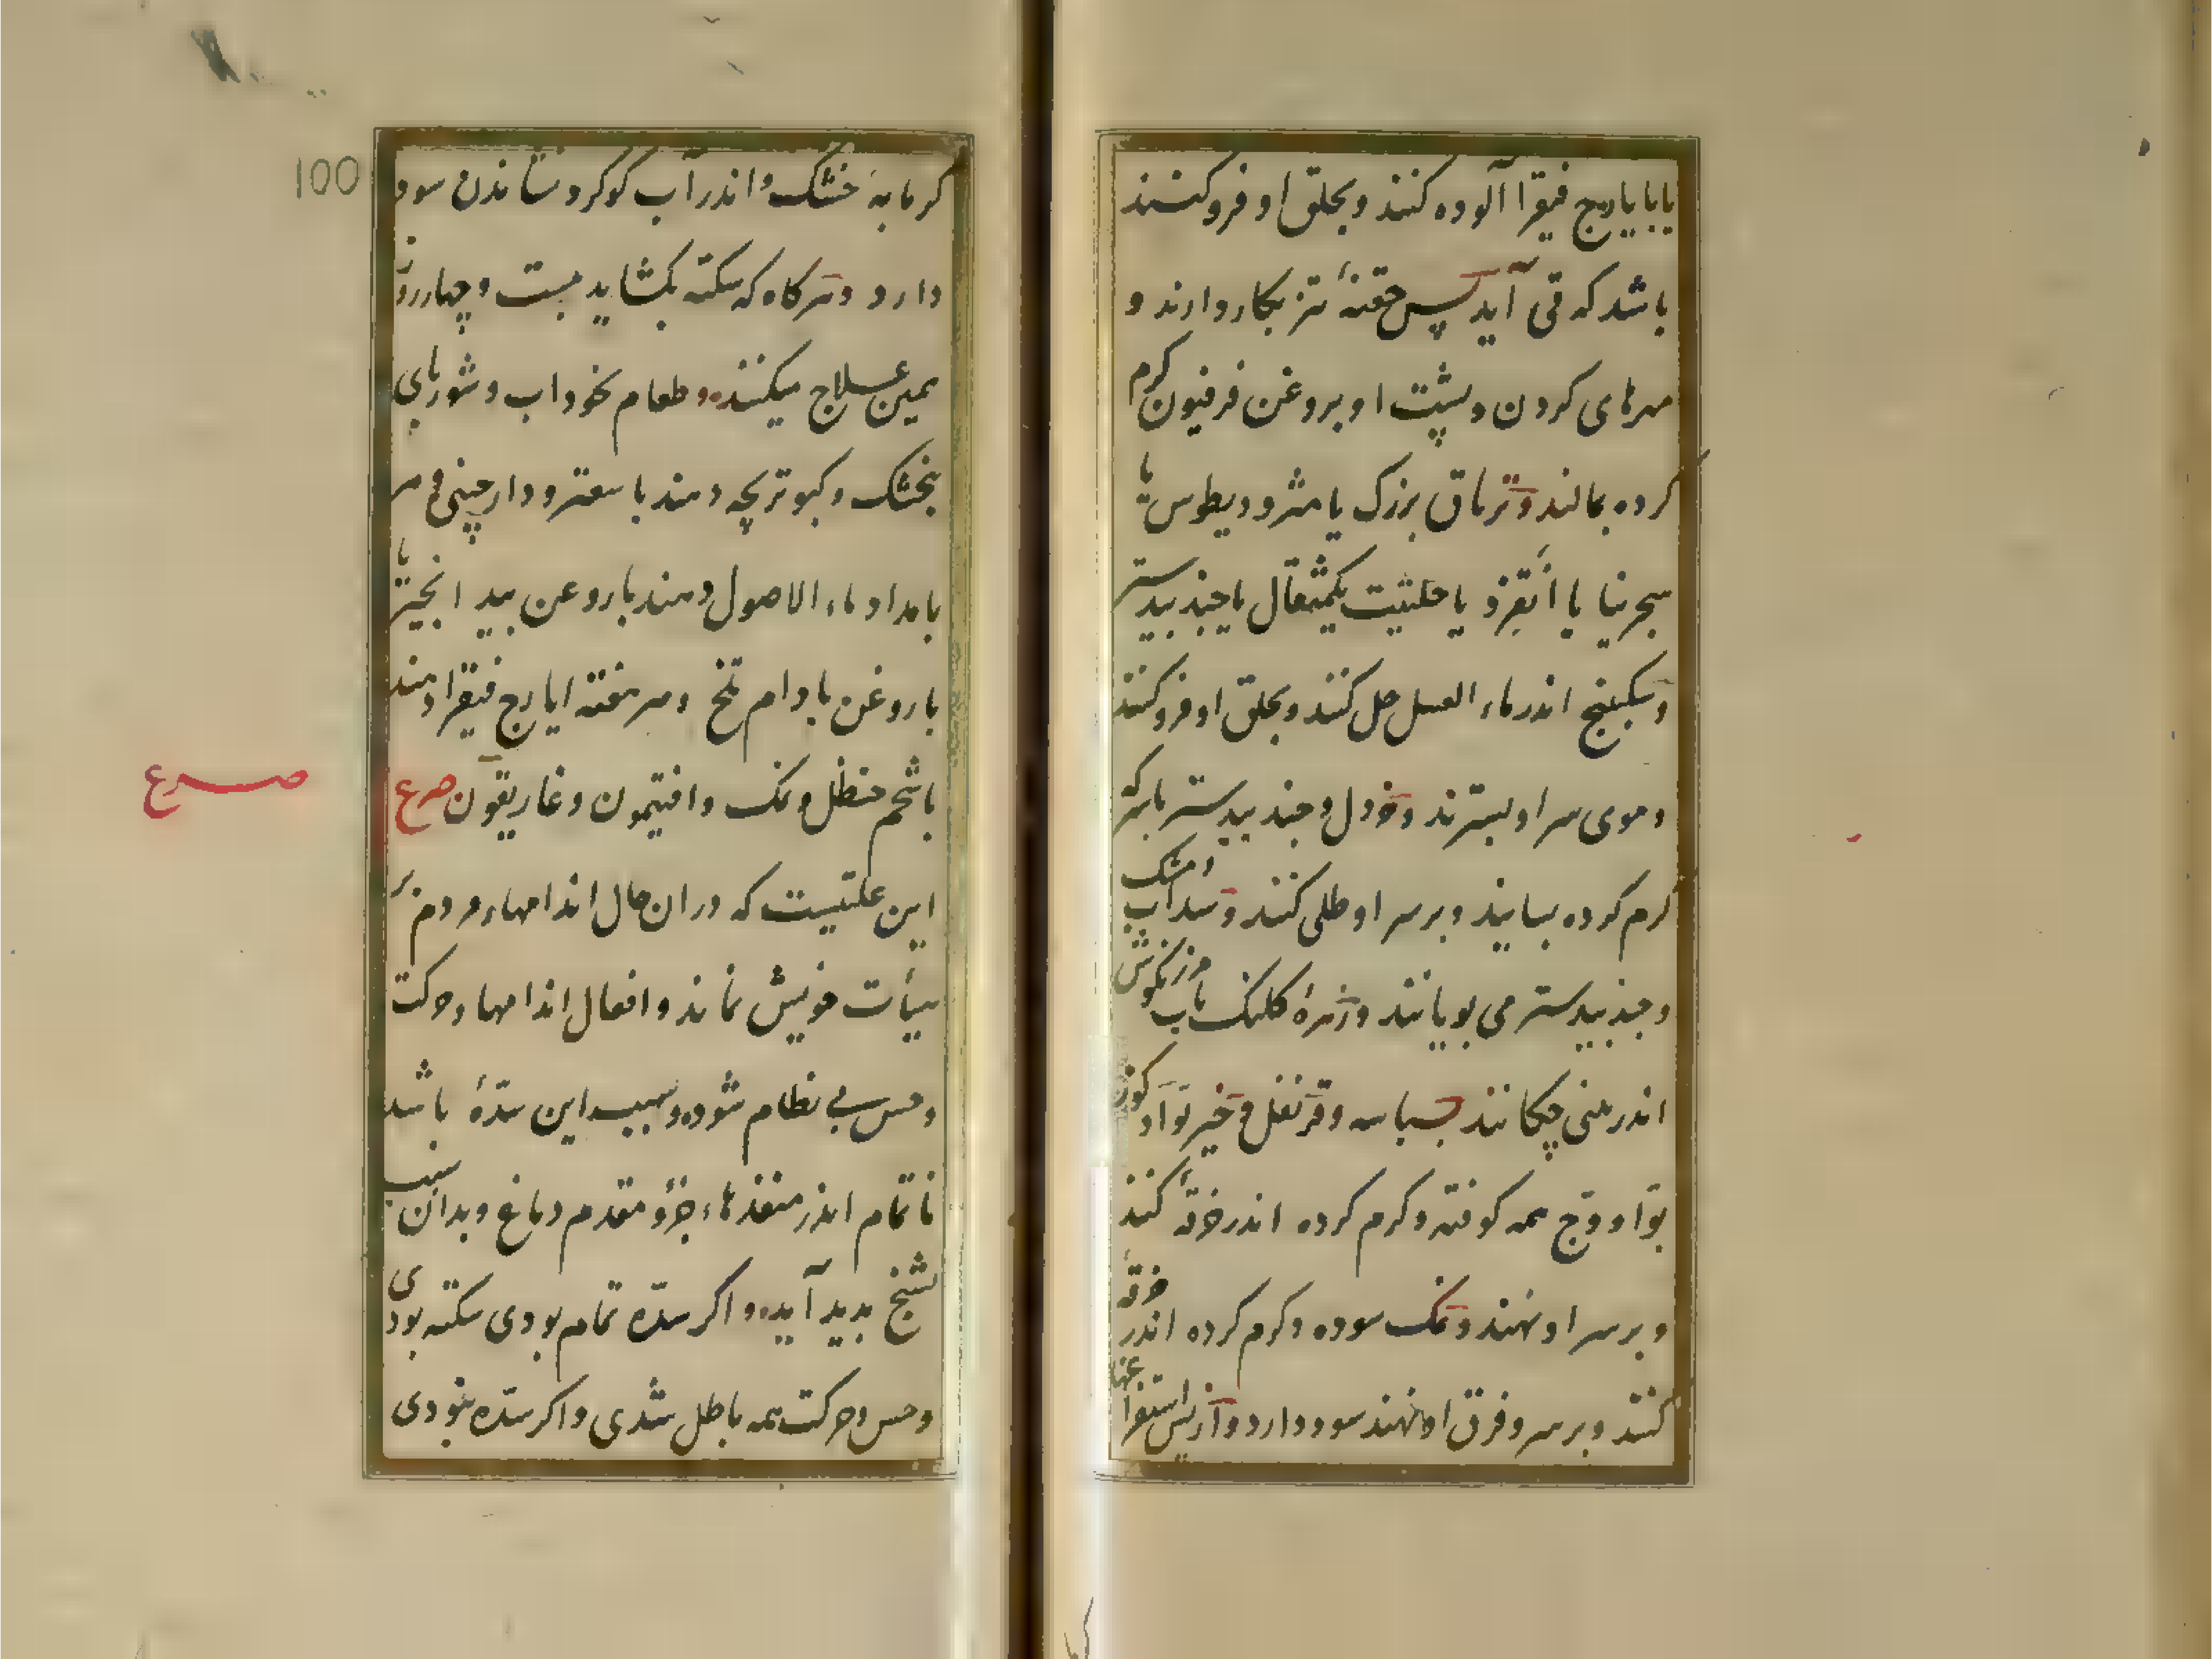 یا بایارج فیقرا آلوده کنند و بحلق او فرو کنند
باشد که قی آید پس حقنهٔ تیز بکار دارند و
مهرهای کردن و پشت او بروغن فرفیون کرم
کرده بمالند و تریاق بزرک یا مثرودیطوس یا
سجرینیا یا انقرذ یا حلتیت یکمثقال یا جندبیدستر
و سکبینج اندر ماء العسل حل کنند و بحلق او فرو کنند
و موی سر او بسترند و خردل و جندبیدستر با سرکه
کرم کرده بسایند و بر سر او طلی کنند و سداب و مشک
و جندبیدستر می بویانند و زهرهٔ کلنک بآب مرزنکوش
اندر بینی چکانند بسباسه و قرنفل و خیربوا و کوز
بوا و وج همه کوفته و کرم کرده اندر خرقهٔ کنند
و بر سر او نهند و نمک سوده و کرم کرده اندر خرقهٔ
کنند و بر سر و فرق او نهند سود دارد و از پس استفراغها
100
کرمابهٔ خشک و اندر آب کوکرد نشاندن سود
دارد و هرکاه که سکته بکشاید بیست و چهار روز
همین علاج میکنند و طعام نخوداب و شوربای
بنجشک و کبوتر بچه دهند با سعتر و دارچینی و هر
بامداد ماء الاصول دهند با روغن بید انجیر یا
با روغن بادام تلخ و هر هفته ایارج فیقرا دهند
با شحم حنظل و نمک و افتیمون و غاریقون صرع
صرع
این علتیست که در آن حال اندامهاء مردم بر
هیأت خویش نماند و افعال اندامها و حرکت
و حس بی نظام شود و سبب این سدهٔ باشد
ناتمام اندر منفذهاء جزؤ مقدم دماغ و بدان سبب
تشنج بدید آید و اکر سدّه تمام بودی سکته بودی
و حس و حرکت همه باطل شدی و اکر سدّه نبودی